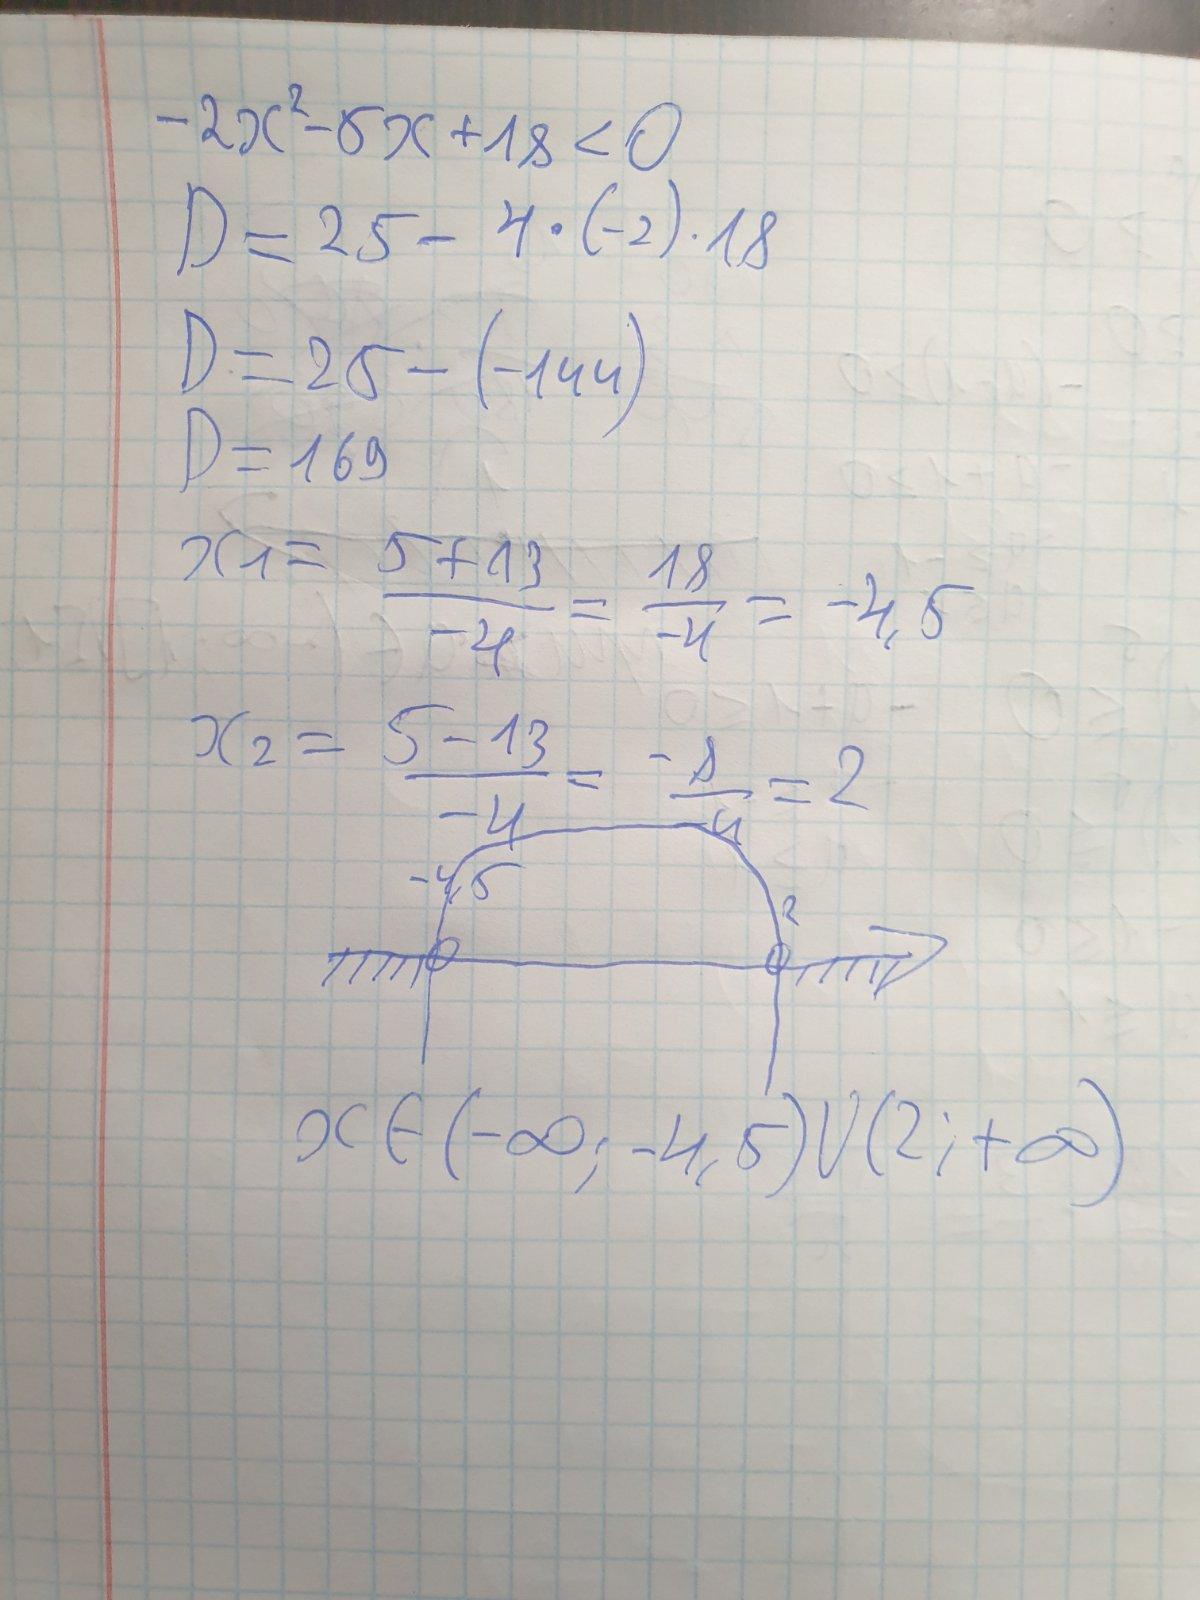 -2x²-5x+18<0
D=25-4·(-2)·18
D=25-(-144)
D=169
x1=5+13/-4=18/-4=-4,5
x2=5-13/-4=-8/-4=2
-4,5 2
x∈(-∞;-4,5)∪(2;+∞)